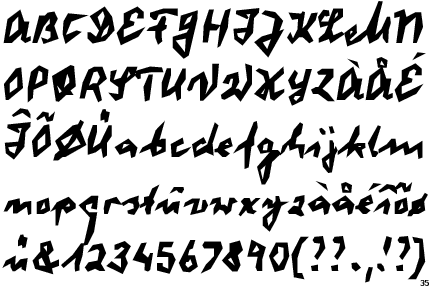 ABCDEFGHIJKLMN
OPQRSTUVWXYZÀÅÉ
ÎÕØÜabcdefghijklm
nopqrstuvwxyzàåéîõø
ü&1234567890(??.,!!)
35